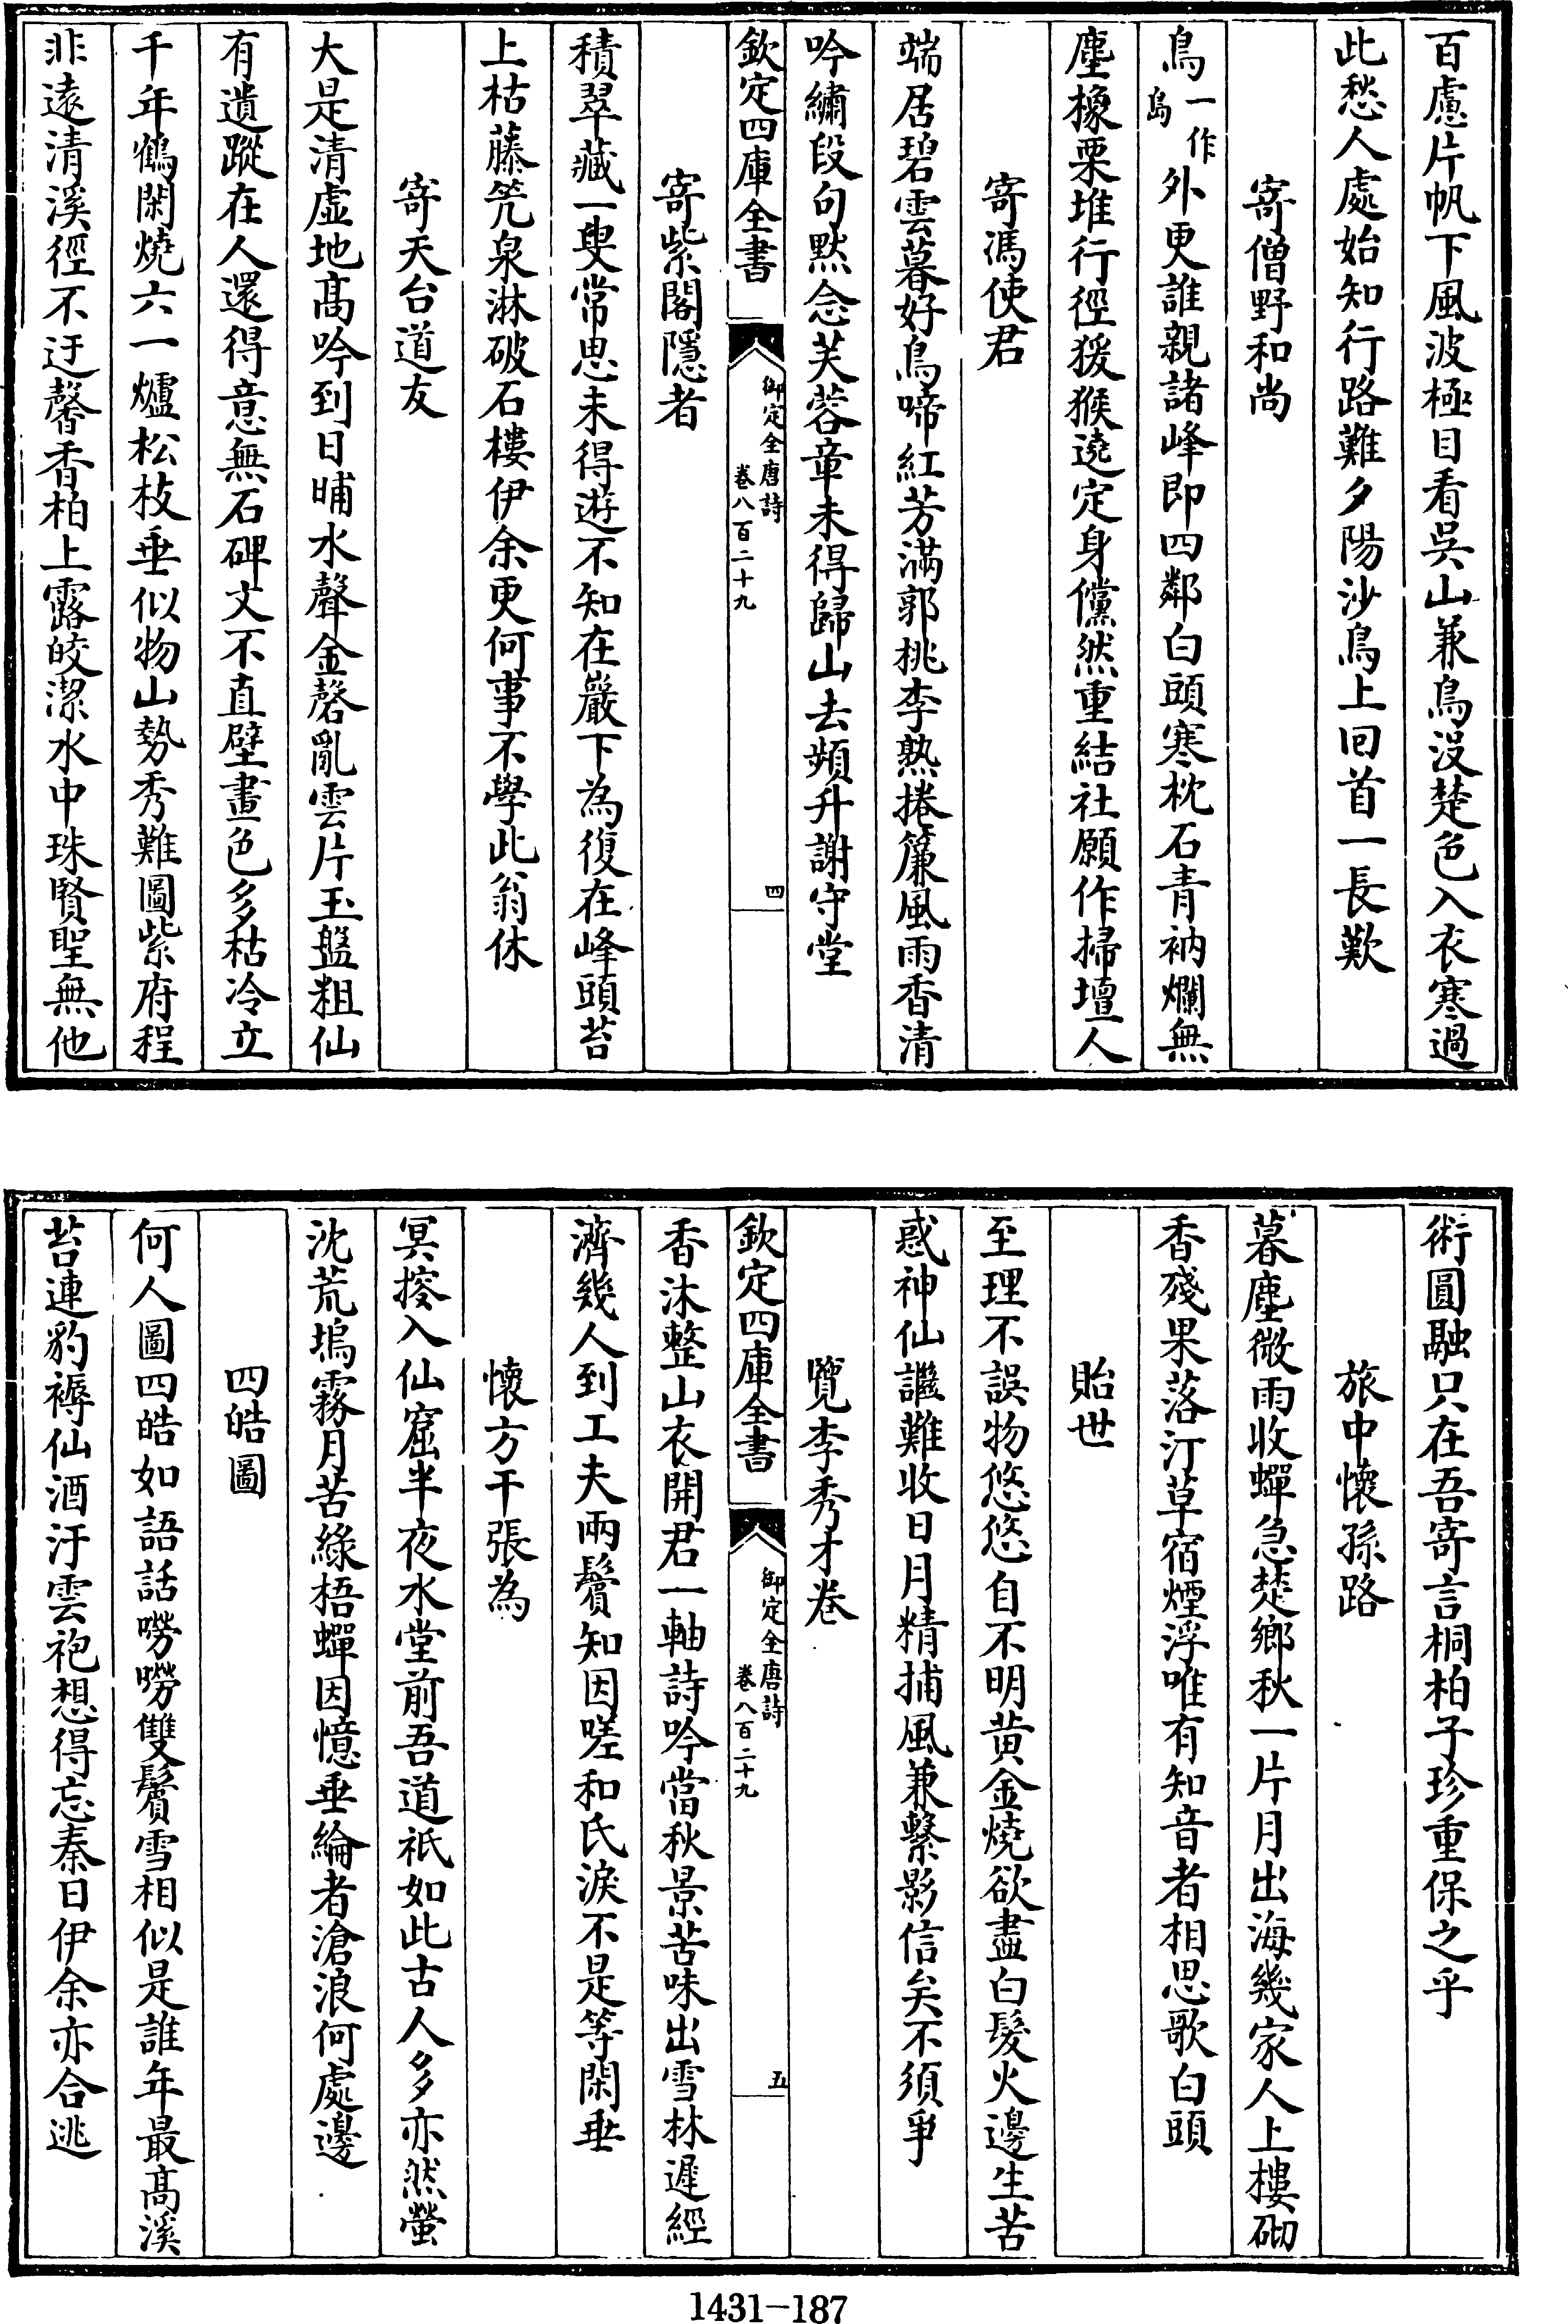 百慮片帆下風波極目看吳山兼鳥没楚色入衣寒過
此愁人處始知行路難夕陽沙鳥上回首一長歎
寄僧野和尚
鳥一作島外更誰親諸峰即四鄰白頭寒枕石青衲爛無
塵橡栗堆行徑猨猴遶定身儻然重結社願作掃壇人
寄馮使君
端居碧雲暮好鳥啼紅芳滿郭桃李熟捲簾風雨香清
吟繡段句默念芙蓉章未得歸山去頻升謝守堂
欽定四庫全書
御定全唐詩
卷八百二十九
四
寄紫閣隱者
積翠藏一叟常思未得遊不知在巖下為復在峰頭苔
上枯藤笐泉淋破石樓伊余更何事不學此翁休
寄天台道友
大是清虛地高吟到日晡水聲金磬亂雲片玉盤粗仙
有遺蹤在人還得意無石碑文不直壁畫色多枯冷立
千年鶴閑燒六一爐松枝垂似物山勢秀難圖紫府程
非遠清溪徑不迂馨香柏上露皎潔水中珠賢聖無他
術圓融只在吾寄言桐柏子珍重保之乎
旅中懷孫路
暮塵微雨收蟬急楚鄉秋一片月出海幾家人上樓砌
香殘果落汀草宿煙浮唯有知音者相思歌白頭
貽世
至理不誤物悠悠自不明黃金燒欲盡白髮火邊生苦
惑神仙諡難收日月精捕風兼繫影信矣不須爭
覽李秀才卷
欽定四庫全書
御定全唐詩
卷八百二十九
五
香沐整山衣開君一軸詩吟當秋景苦味出雪林遲經
濟幾人到工夫兩鬢知因嗟和氏淚不是等閑垂
懷方干張為
冥搜入仙窟半夜水堂前吾道祇如此古人多亦然螢
沈荒塢霧月苦綠梧蟬因憶垂綸者滄浪何處邊
四皓圖
何人圖四皓如語話嘮嘮雙鬢雪相似是誰年最高溪
苔連豹褥仙酒汙雲袍想得忘秦日伊余亦合逃
1431-187